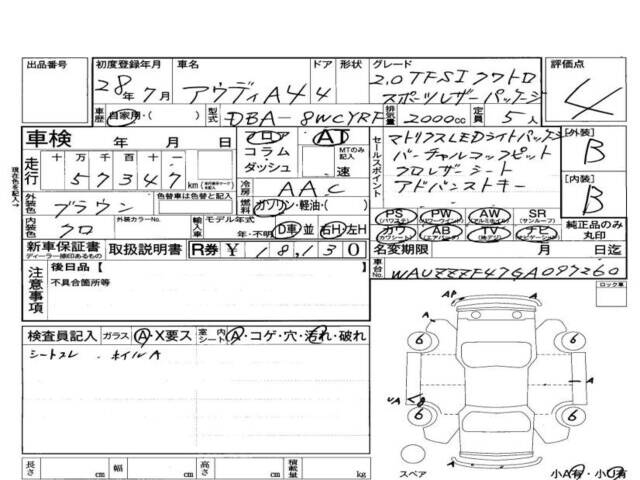 出品番号 初度登録年月 車名 ドア 形状 グレード 評価点
28年7月 アウディA4 4 2.0TFSIクワトロ
スポーツレザーパッケージ 4
車歴 自家用・( ) 型式 DBA-8WCYRF 排気量 2000cc 定員 5人
車検 年 月 日 フロア AT マトリクスLEDライトパッケージ [外装]
コラム・ダッシュ MTのみ記入 速 セールスポイント バーチャルコックピット B
走行 十万千百十一 57347 km プロレザーシート
冷房 AAC アドバンストキー [内装]
現在色を記入→ 外装色 ブラウン 色替車は色替元色 燃料 ガソリン・軽油・( ) B
PS (パワステ) PW (パワーウィンド) AW (アルミホイル) SR (サンルーフ)
内装色 クロ 外装カラーNo. 輸入車 モデル年式 年・不明 D車 並 右H 左H カワ (カワシート) AB (エアバッグ) TV (地デジ) ナビ (ナビゲーション) 純正品のみ丸印
新車保証書 ディーラー捺印あるもの 取扱説明書 R券 ¥ 18,130 名変期限 月 日迄
注意事項 後日品 [ ] 車台No. WAUZZZF47GA097260
不具合箇所等 ロック車
A
検査員記入 ガラス A・X要ス 室内シート A・コゲ・穴・汚れ・破れ
シートスレ ホイルA
6 6
A A
6 6
長さ cm 幅 cm 高さ cm 積載量 kg
スペア A 小A有・小U有